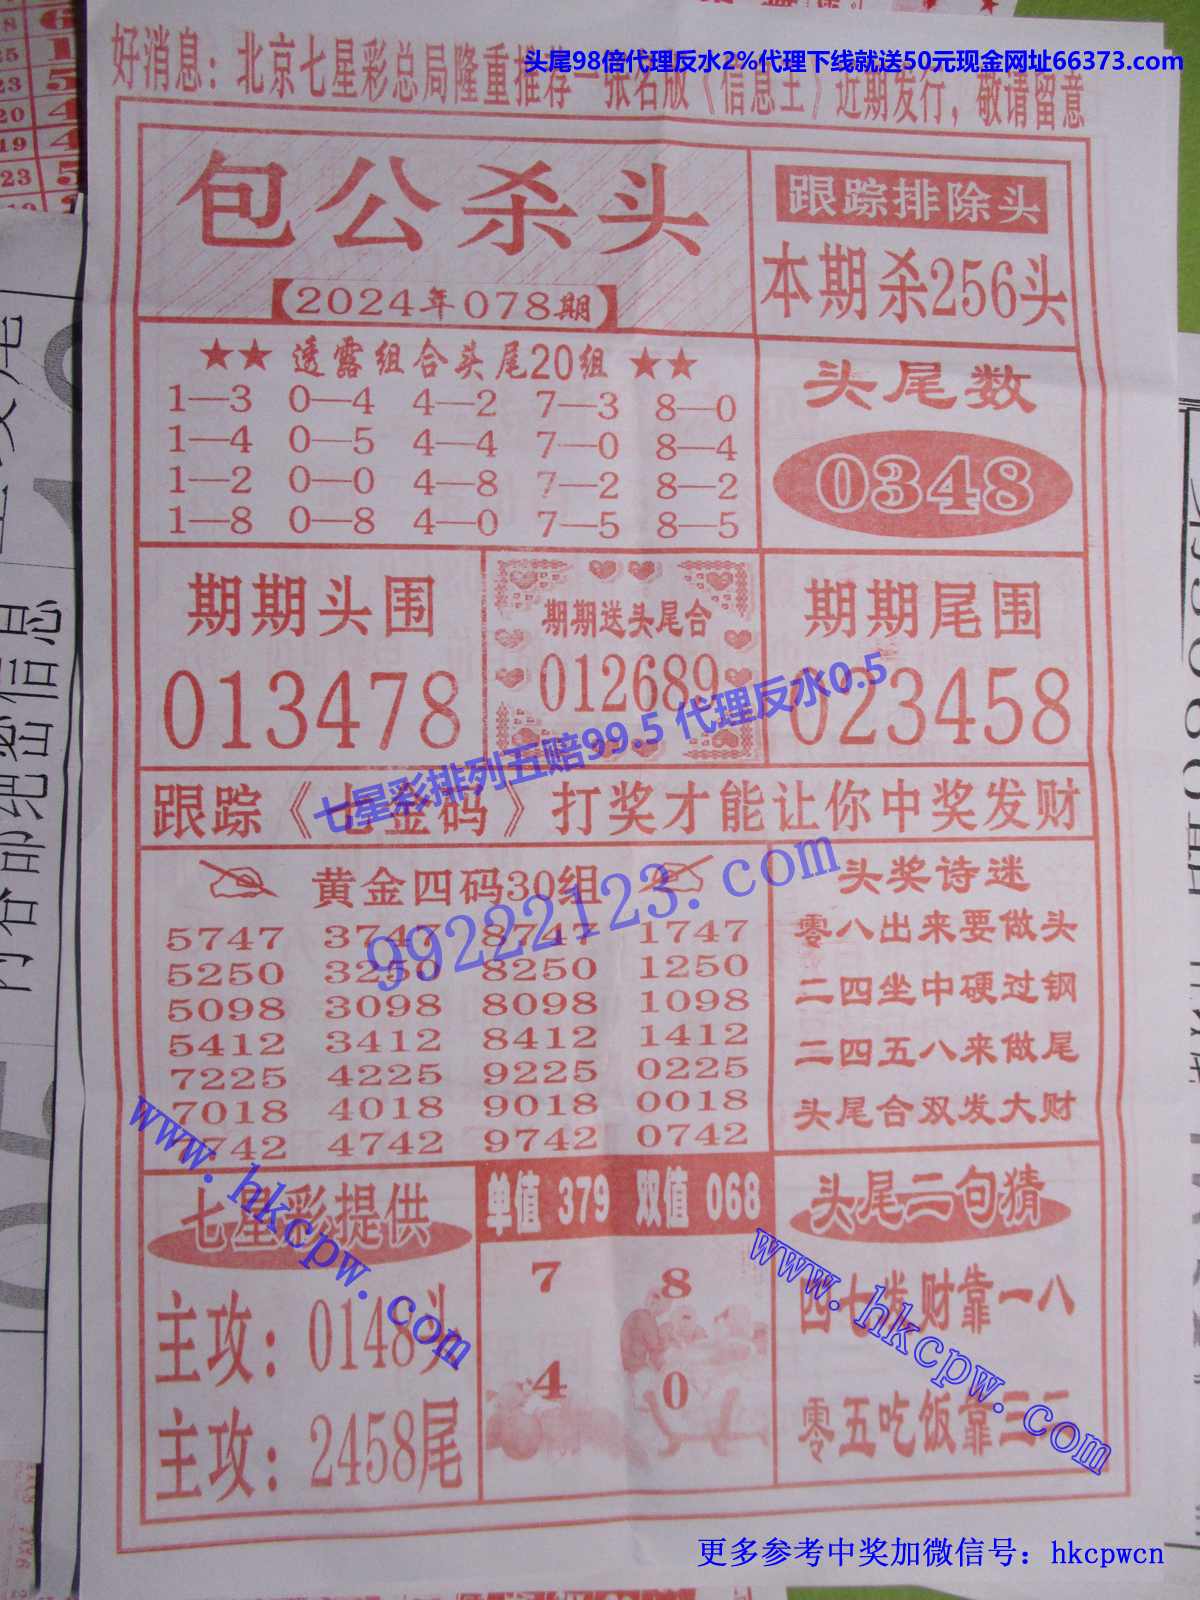 头尾98倍代理反水2%代理下线就送50元现金网址66373.com
好消息：北京七星彩总局隆重推荐一张名版《信息王》近期发行，敬请留意
包公杀头
【2024年078期】
跟踪排除头
本期杀256头
★★ 透露组合头尾20组 ★★
1—3 0—4 4—2 7—3 8—0
1—4 0—5 4—4 7—0 8—4
1—2 0—0 4—8 7—2 8—2
1—8 0—8 4—0 7—5 8—5
头尾数
0348
期期头围
013478
期期送头尾合
012689
期期尾围
023458
七星彩排列五赔99.5 代理反水0.5
跟踪《七金码》打奖才能让你中奖发财
黄金四码30组
99222123.com
5747 3747 8747 1747
5250 3250 8250 1250
5098 3098 8098 1098
5412 3412 8412 1412
7225 4225 9225 0225
7018 4018 9018 0018
742 4742 9742 0742
头奖诗迷
零八出来要做头
二四坐中硬过钢
二四五八来做尾
头尾合双发大财
www.hkcpw.com
七星彩提供
主攻：0148头
主攻：2458尾
单值 379 双值 068
7 8
4 0
头尾二句猜
四七发财靠一八
零五吃饭靠三二
www.hkcpw.com
更多参考中奖加微信号：hkcpwcn
内部绝密信息